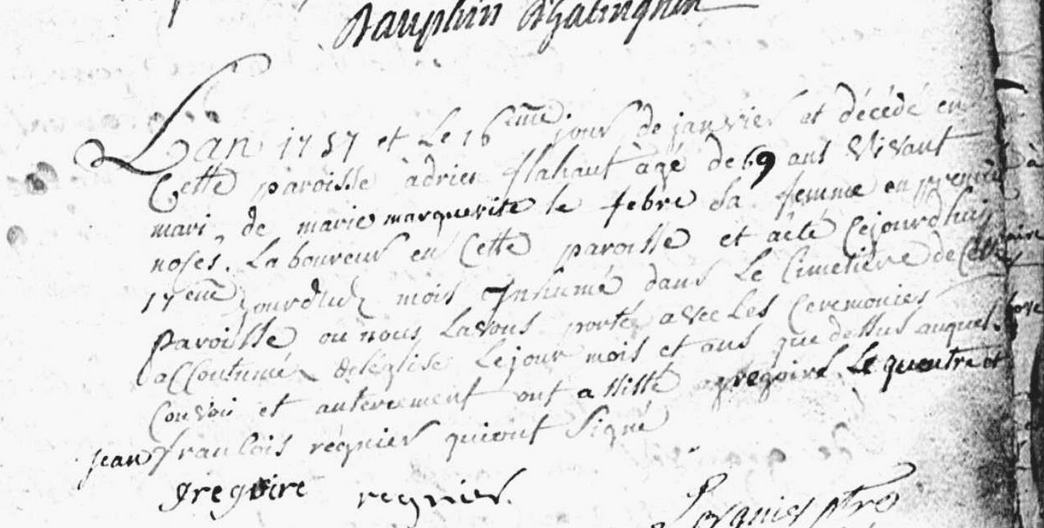 Dauphin
Lan 1757 et Le 16eme jour de janvier et décédé en
Cette paroisse adrien flahaut agé de 69 ans vivant
mari de marie marguerite le febre sa femme en premier
noses. Laboureur en Cette paroisse et aété Cejourdhuis
17eme jourdud mois Inhumé dans Le Cimetiere de Cette
paroisse ou nous Lavons porté avec Les Ceremonies
accoutumé deléglise Lejour mois et ans que dessus auquel
Convoi et enterrement ont assisté gregoire Le quentre et
jean francois regnier quiont Signé
gregoire regnier.
ptre